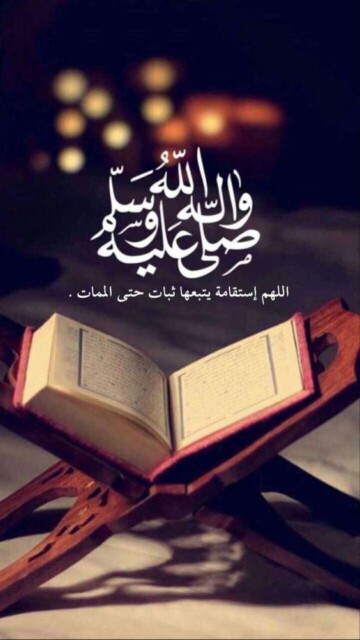 صلى الله عليه وآله وسلم
اللهم إستقامة يتبعها ثبات حتى الممات .